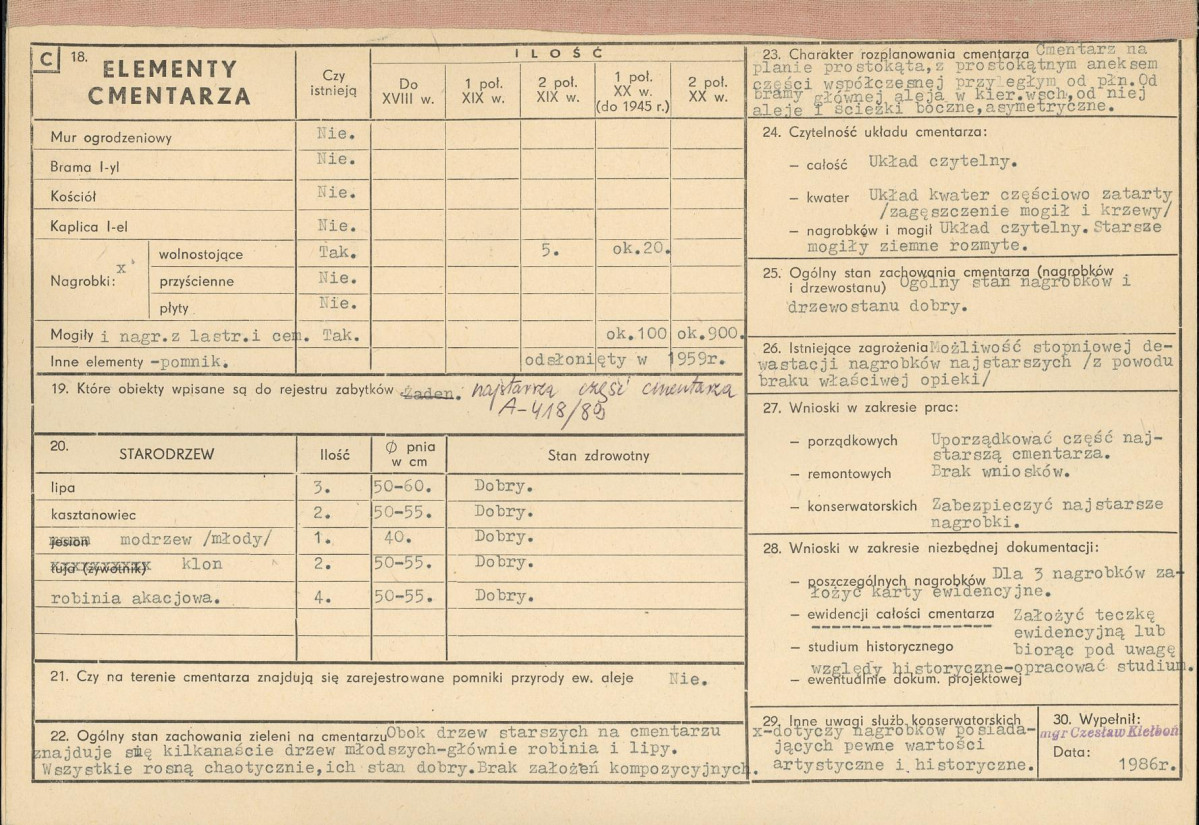 C 18. ELEMENTY CMENTARZA
Czy istnieją
ILOŚĆ
Do XVIII w.
1 poł. XIX w.
2 poł. XIX w.
1 poł. XX w. (do 1945 r.)
2 poł. XX w.
Mur ogrodzeniowy Nie.
Brama I-yl Nie.
Kościół Nie.
Kaplica I-el Nie.
Nagrobki: x
wolnostojące Tak. 5. ok.20.
przyścienne Nie.
płyty Nie.
Mogiły i nagr.z lastr.i cem. Tak. ok.100 ok.900.
Inne elementy -pomnik. odsłonięty w 1959r.
19. Które obiekty wpisane są do rejestru zabytków Żaden. najstarsza część cmentarza
A-418/89
20. STARODRZEW Ilość Ø pnia w cm Stan zdrowotny
lipa 3. 50-60. Dobry.
kasztanowiec 2. 50-55. Dobry.
jesion modrzew /młody/ 1. 40. Dobry.
tuja (żywotnik) klon 2. 50-55. Dobry.
robinia akacjowa. 4. 50-55. Dobry.
21. Czy na terenie cmentarza znajdują się zarejestrowane pomniki przyrody ew. aleje Nie.
22. Ogólny stan zachowania zieleni na cmentarzu Obok drzew starszych na cmentarzu
znajduje się kilkanaście drzew młodszych-głównie robinia i lipy.
Wszystkie rosną chaotycznie,ich stan dobry.Brak założeń kompozycyjnych.
23. Charakter rozplanowania cmentarza Cmentarz na
planie prostokąta,z prostokątnym aneksem
części współczesnej przyległym od płn.Od
bramy głównej aleja w kier.wsch,od niej
aleje i ścieżki boczne,asymetryczne.
24. Czytelność układu cmentarza:
– całość Układ czytelny.
– kwater Układ kwater częściowo zatarty
/zagęszczenie mogił i krzewy/
– nagrobków i mogił Układ czytelny.Starsze
mogiły ziemne rozmyte.
25. Ogólny stan zachowania cmentarza (nagrobków
i drzewostanu) Ogólny stan nagrobków i
drzewostanu dobry.
26. Istniejące zagrożenia Możliwość stopniowej de-
wastacji nagrobków najstarszych /z powodu
braku właściwej opieki/
27. Wnioski w zakresie prac:
– porządkowych Uporządkować część naj-
starszą cmentarza.
– remontowych Brak wniosków.
– konserwatorskich Zabezpieczyć najstarsze
nagrobki.
28. Wnioski w zakresie niezbędnej dokumentacji:
– poszczególnych nagrobków Dla 3 nagrobków za-
łożyć karty ewidencyjne.
– ewidencji całości cmentarza Założyć teczkę
ewidencyjną lub
– studium historycznego biorąc pod uwagę
względy historyczne-opracować studium.
– ewentualnie dokum. projektowej
29. Inne uwagi służb konserwatorskich
x-dotyczy nagrobków posiada-
jących pewne wartości
artystyczne i historyczne.
30. Wypełnił:
mgr Czesław Kiełboń
Data:
1986r.